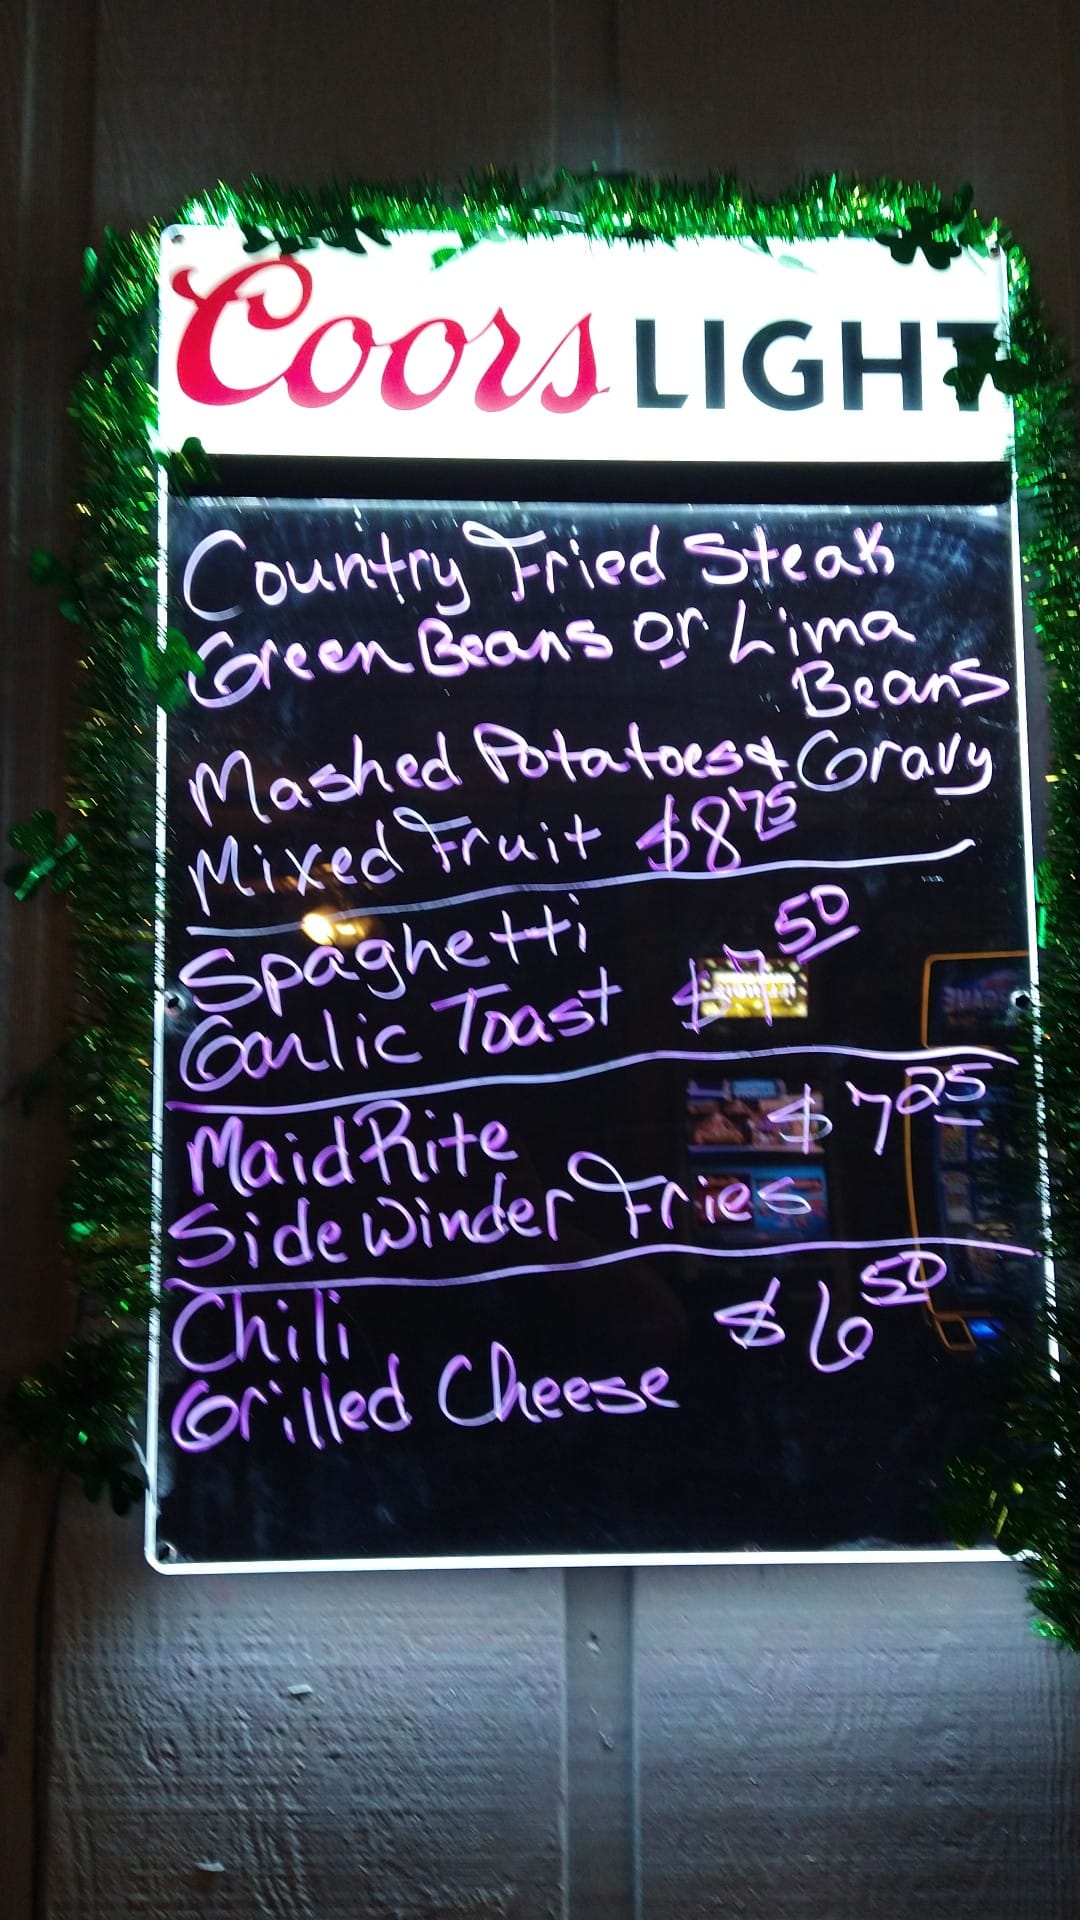 Coors LIGHT
Country Fried Steak
Green Beans or Lima
Beans
Mashed Potatoes & Gravy
Mixed Fruit $8 75
Spaghetti
Garlic Toast $7 50
MaidRite $7 25
Side Winder Fries
Chili $6 50
Grilled Cheese